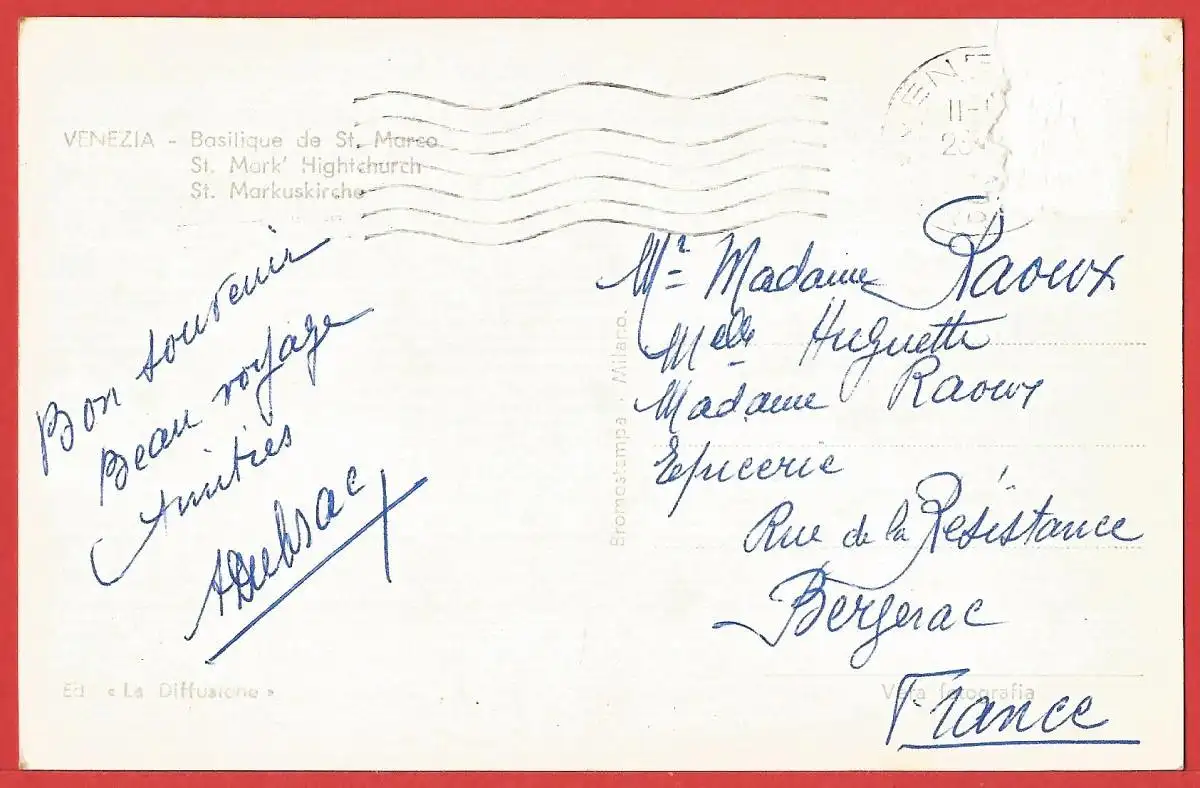 VENEZIA - Basilique de St. Marco
St. Mark' Hightchurch
St. Markuskirche
VENEZ
II-
20
Bon souvenir
Beau voyage
Amitiés
ADubrac
Mr = Madame Raoux
Melle Huguette
Madame Raoux
Epicerie
Rue de la Résistance
Bergerac
France
Bromostampa - Milano.
Ed. « La Diffusione »
Vera fotografia